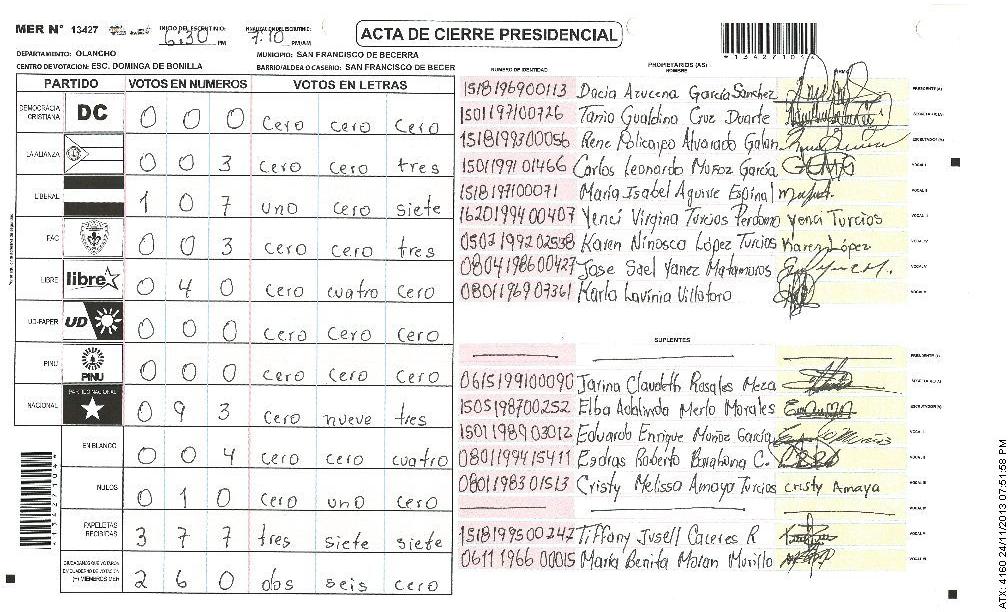 MER N° 13427 INICIO DEL ESCRUTINIO: 6:30 PM 7:10 PM/AM ACTA DE CIERRE PRESIDENCIAL
*13427104*
DEPARTAMENTO: OLANCHO MUNICIPIO: SAN FRANCISCO DE BECERRA
CENTRO DE VOTACION: ESC. DOMINGA DE BONILLA BARRIO/ALDEA O CASERIO: SAN FRANCISCO DE BECER
PARTIDO VOTOS EN NUMEROS VOTOS EN LETRAS
DEMOCRACIA CRISTIANA DC 0 0 0 cero cero cero
LA ALIANZA 0 0 3 cero cero tres
LIBERAL 1 0 7 uno cero siete
PAC 0 0 3 cero cero tres
LIBRE libre 0 4 0 cero cuatro cero
UD-FAPER UD 0 0 0 cero cero cero
PINU PINU 0 0 0 cero cero cero
NACIONAL PARTIDO NACIONAL 0 9 3 cero nueve tres
EN BLANCO 0 0 4 cero cero cuatro
NULOS 0 1 0 cero uno cero
PAPELETAS RECIBIDAS 3 7 7 tres siete siete
CIUDADANOS QUE VOTARON EN CUADERNO DE VOTACION (+) MIEMBROS MER 2 6 0 dos seis cero
*13427104*
NUMERO DE IDENTIDAD PROPIETARIOS (AS) NOMBRE FIRMA
1518196900113 Dacia Azucena García Sanchez PRESIDENTE (A)
1501197100726 Tania Gualdina Cruz Duarte SECRETARIO (A)
1518199300056 Rene Policarpo Alvarado Galan ESCRUTADOR (A)
1501199101466 Carlos Leonardo Muñoz García CLMG VOCAL I
1518197100071 María Isabel Aguirre Espinal VOCAL II
1620199400407 Yenci Virgina Turcios Perdomo Yenci Turcios VOCAL III
0502199202538 Karen Ninosca López Turcios Karen López VOCAL IV
0804198600427 Jose Sael Yanez Matamoros VOCAL V
0801196907361 Karla Lavinia Villatoro VOCAL VI
SUPLENTES
PRESIDENTE (A)
0615199100090 Jarina Claudeth Rosales Meza SECRETARIO (A)
1505198700252 Elba Adalinda Merlo Morales ESCRUTADOR (A)
1501198903012 Eduardo Enrique Muñoz García VOCAL I
0801199415411 Esdras Roberto Barahona C. VOCAL II
0801198301513 Cristy Melissa Amaya Turcios cristy Amaya VOCAL III
VOCAL IV
1518199500242 Tiffany Jusell Caceres R VOCAL V
0611196600015 María Benita Moran Murillo VOCAL VI
ATX: 4160 24/11/2013 07:51:58 PM